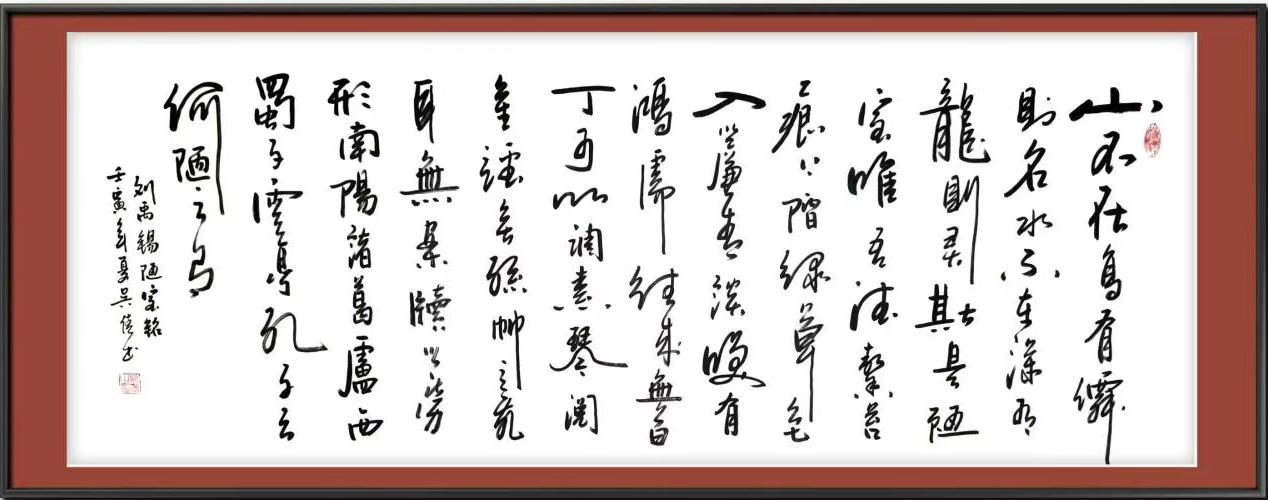 山不在高有僊
則名水不在深有
龍則灵斯是陋
室唯吾德馨苔
痕上階綠草色
入簾青談笑有
鴻儒往來無白
丁可以調素琴閱
金經無絲竹之亂
耳無案牘之勞
形南陽諸葛廬西
蜀子雲亭孔子云
何陋之有
刘禹錫陋室銘
壬寅年夏吳书